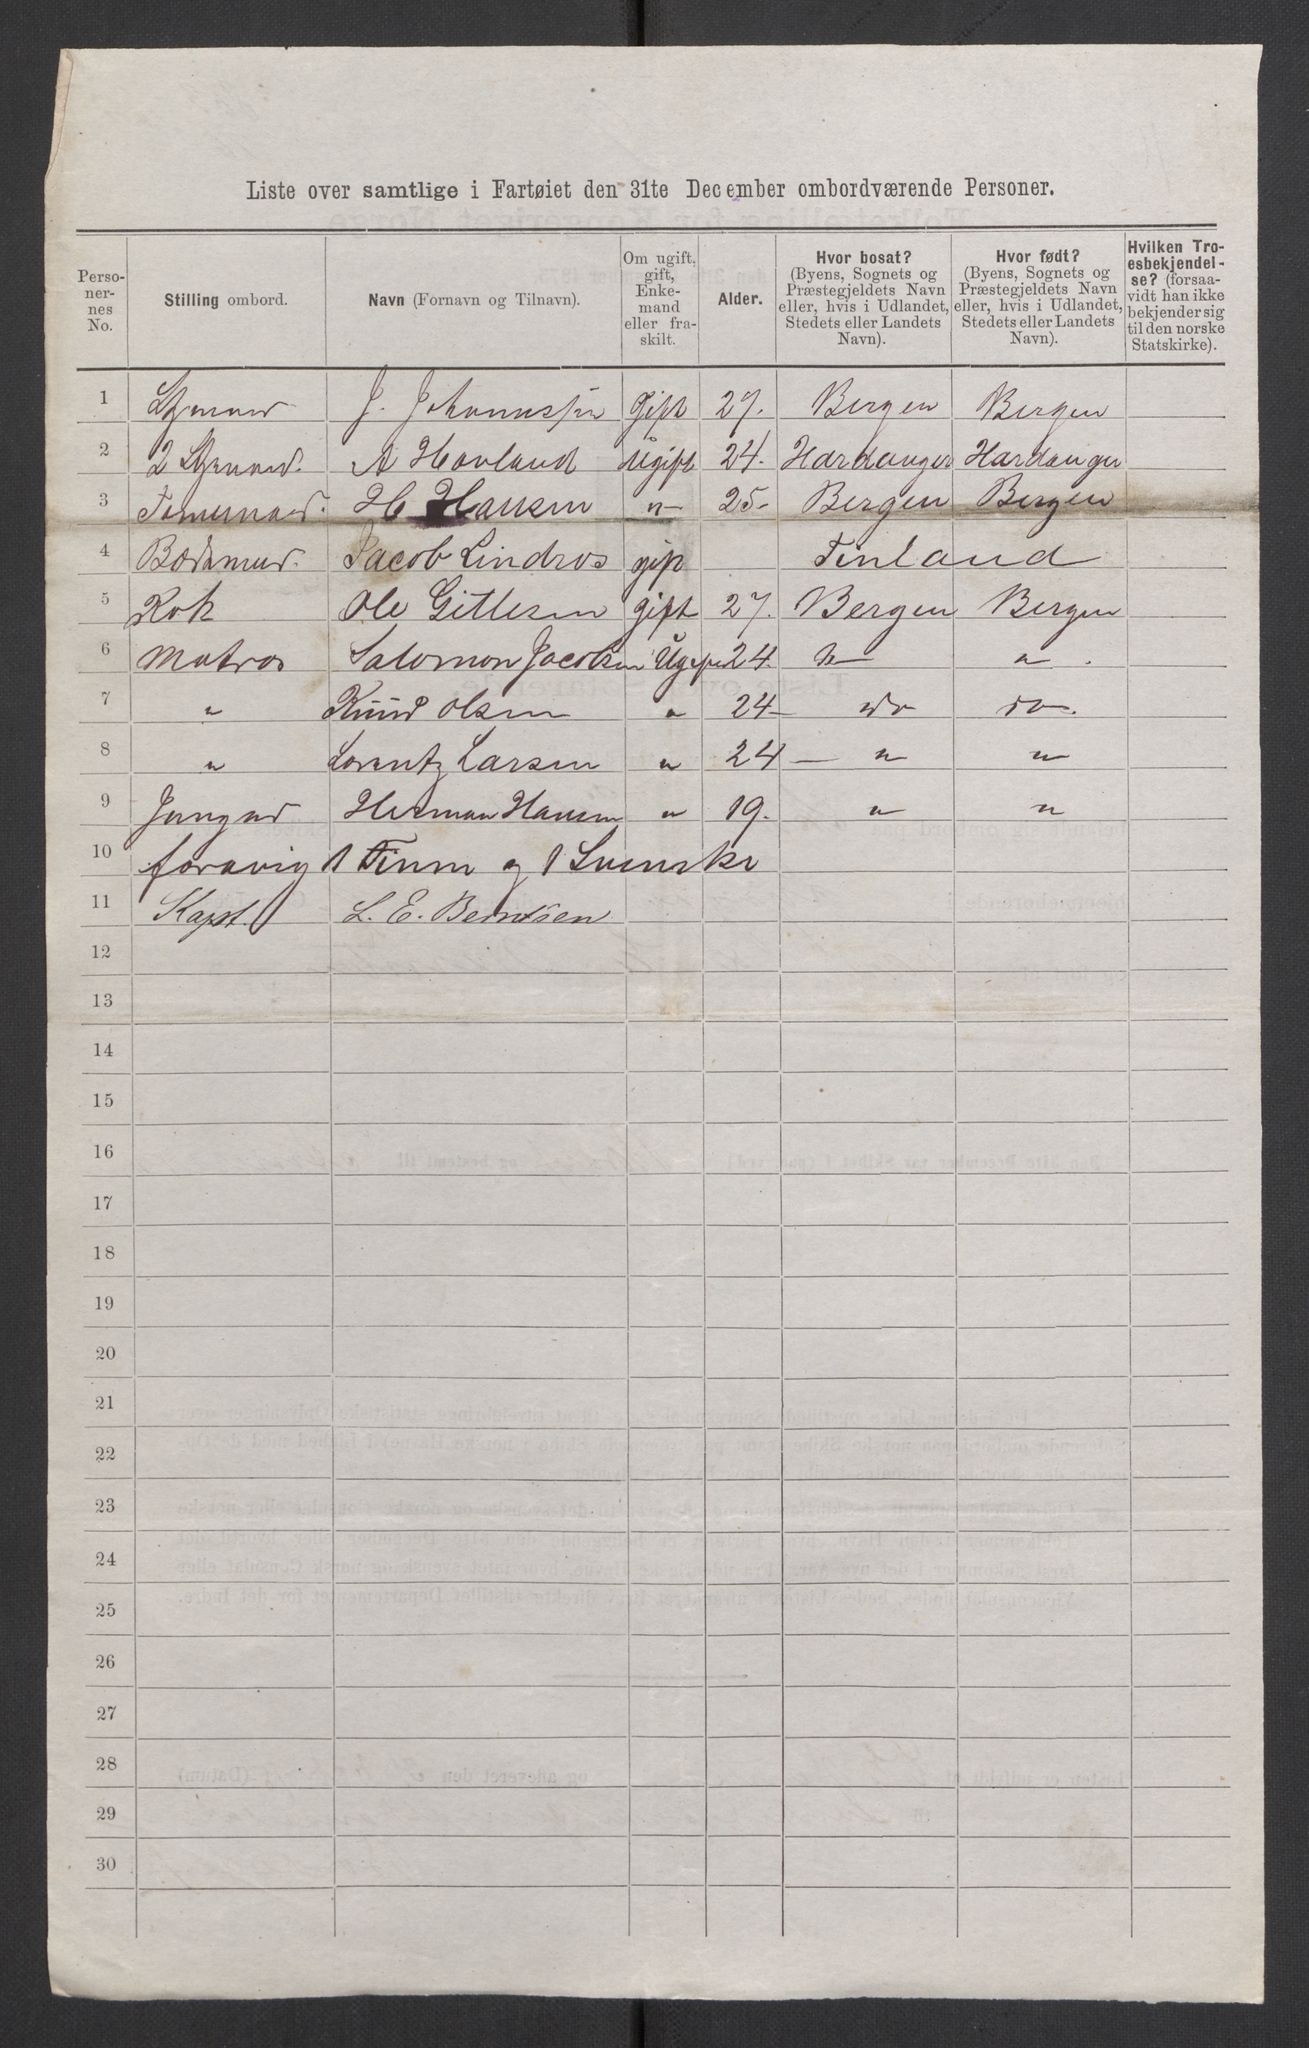 Liste over samtlige i Fartøiet den 31te December ombordværende Personer.
Perso-
ner-
nes
No.
Stilling ombord.
Navn (Fornavn og Tilnavn).
Om ugift,
gift,
Enke-
mand
eller fra-
skilt.
Alder.
Hvor bosat?
(Byens, Sognets og
Præstegjeldets Navn
eller, hvis i Udlandet,
Stedets eller Landets
Navn).
Hvor født?
(Byens, Sognets og
Præstegjeldets Navn
eller, hvis i Udlandet,
Stedets eller Landets
Navn).
Hvilken Tro-
esbekjendel-
se? (forsaa-
vidt han ikke
bekjender sig
til den norske
Statskirke).
1 Styrmand J. Johannessen Gift 27. Bergen Bergen
2 2 Styrmand. A Havland Ugift 24. Hardanger Hardanger
3 Tømmmand. H Hansen " 25- Bergen Bergen
4 Baadsmand. Jacob Lindros gift Finland
5 Kok Ole Gittesen gift 27. Bergen Bergen
6 Matros Salomon Jacobsen Ugift 24. " "
7 " Knud Olsen " 24- do do.
8 " Lorentz Larsen " 24 - " "
9 Jungmd Herman Hansen " 19. " "
10 forøvrig 1 Finn og 1 Svenske
11 Kapt. L. E. Berntsen
12
13
14
15
16
17
18
19
20
21
22
23
24
25
26
27
28
29
30